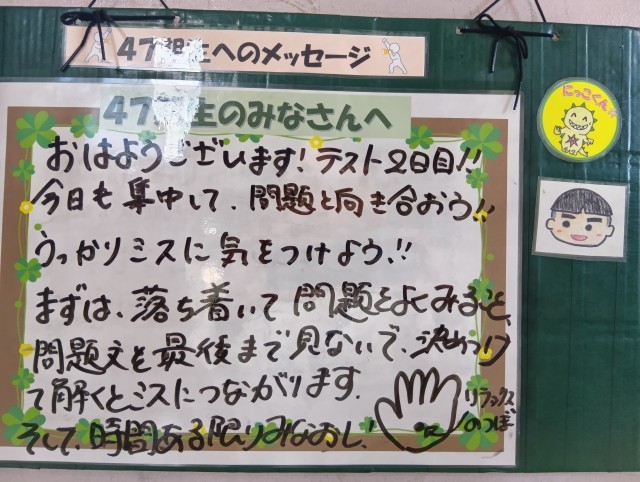 47期生へのメッセージ
47期生のみなさんへ
おはようございます!テスト2日目!!
今日も集中して、問題と向き合おう!!
うっかりミスに気をつけよう!!
まずは、落ち着いて問題をよくみること、
問題文を最後まで見ないで、決めつけ
て解くとミスにつながります。
そして、時間ある限りみなおし!
リラックス
のつぼ
にっこくん